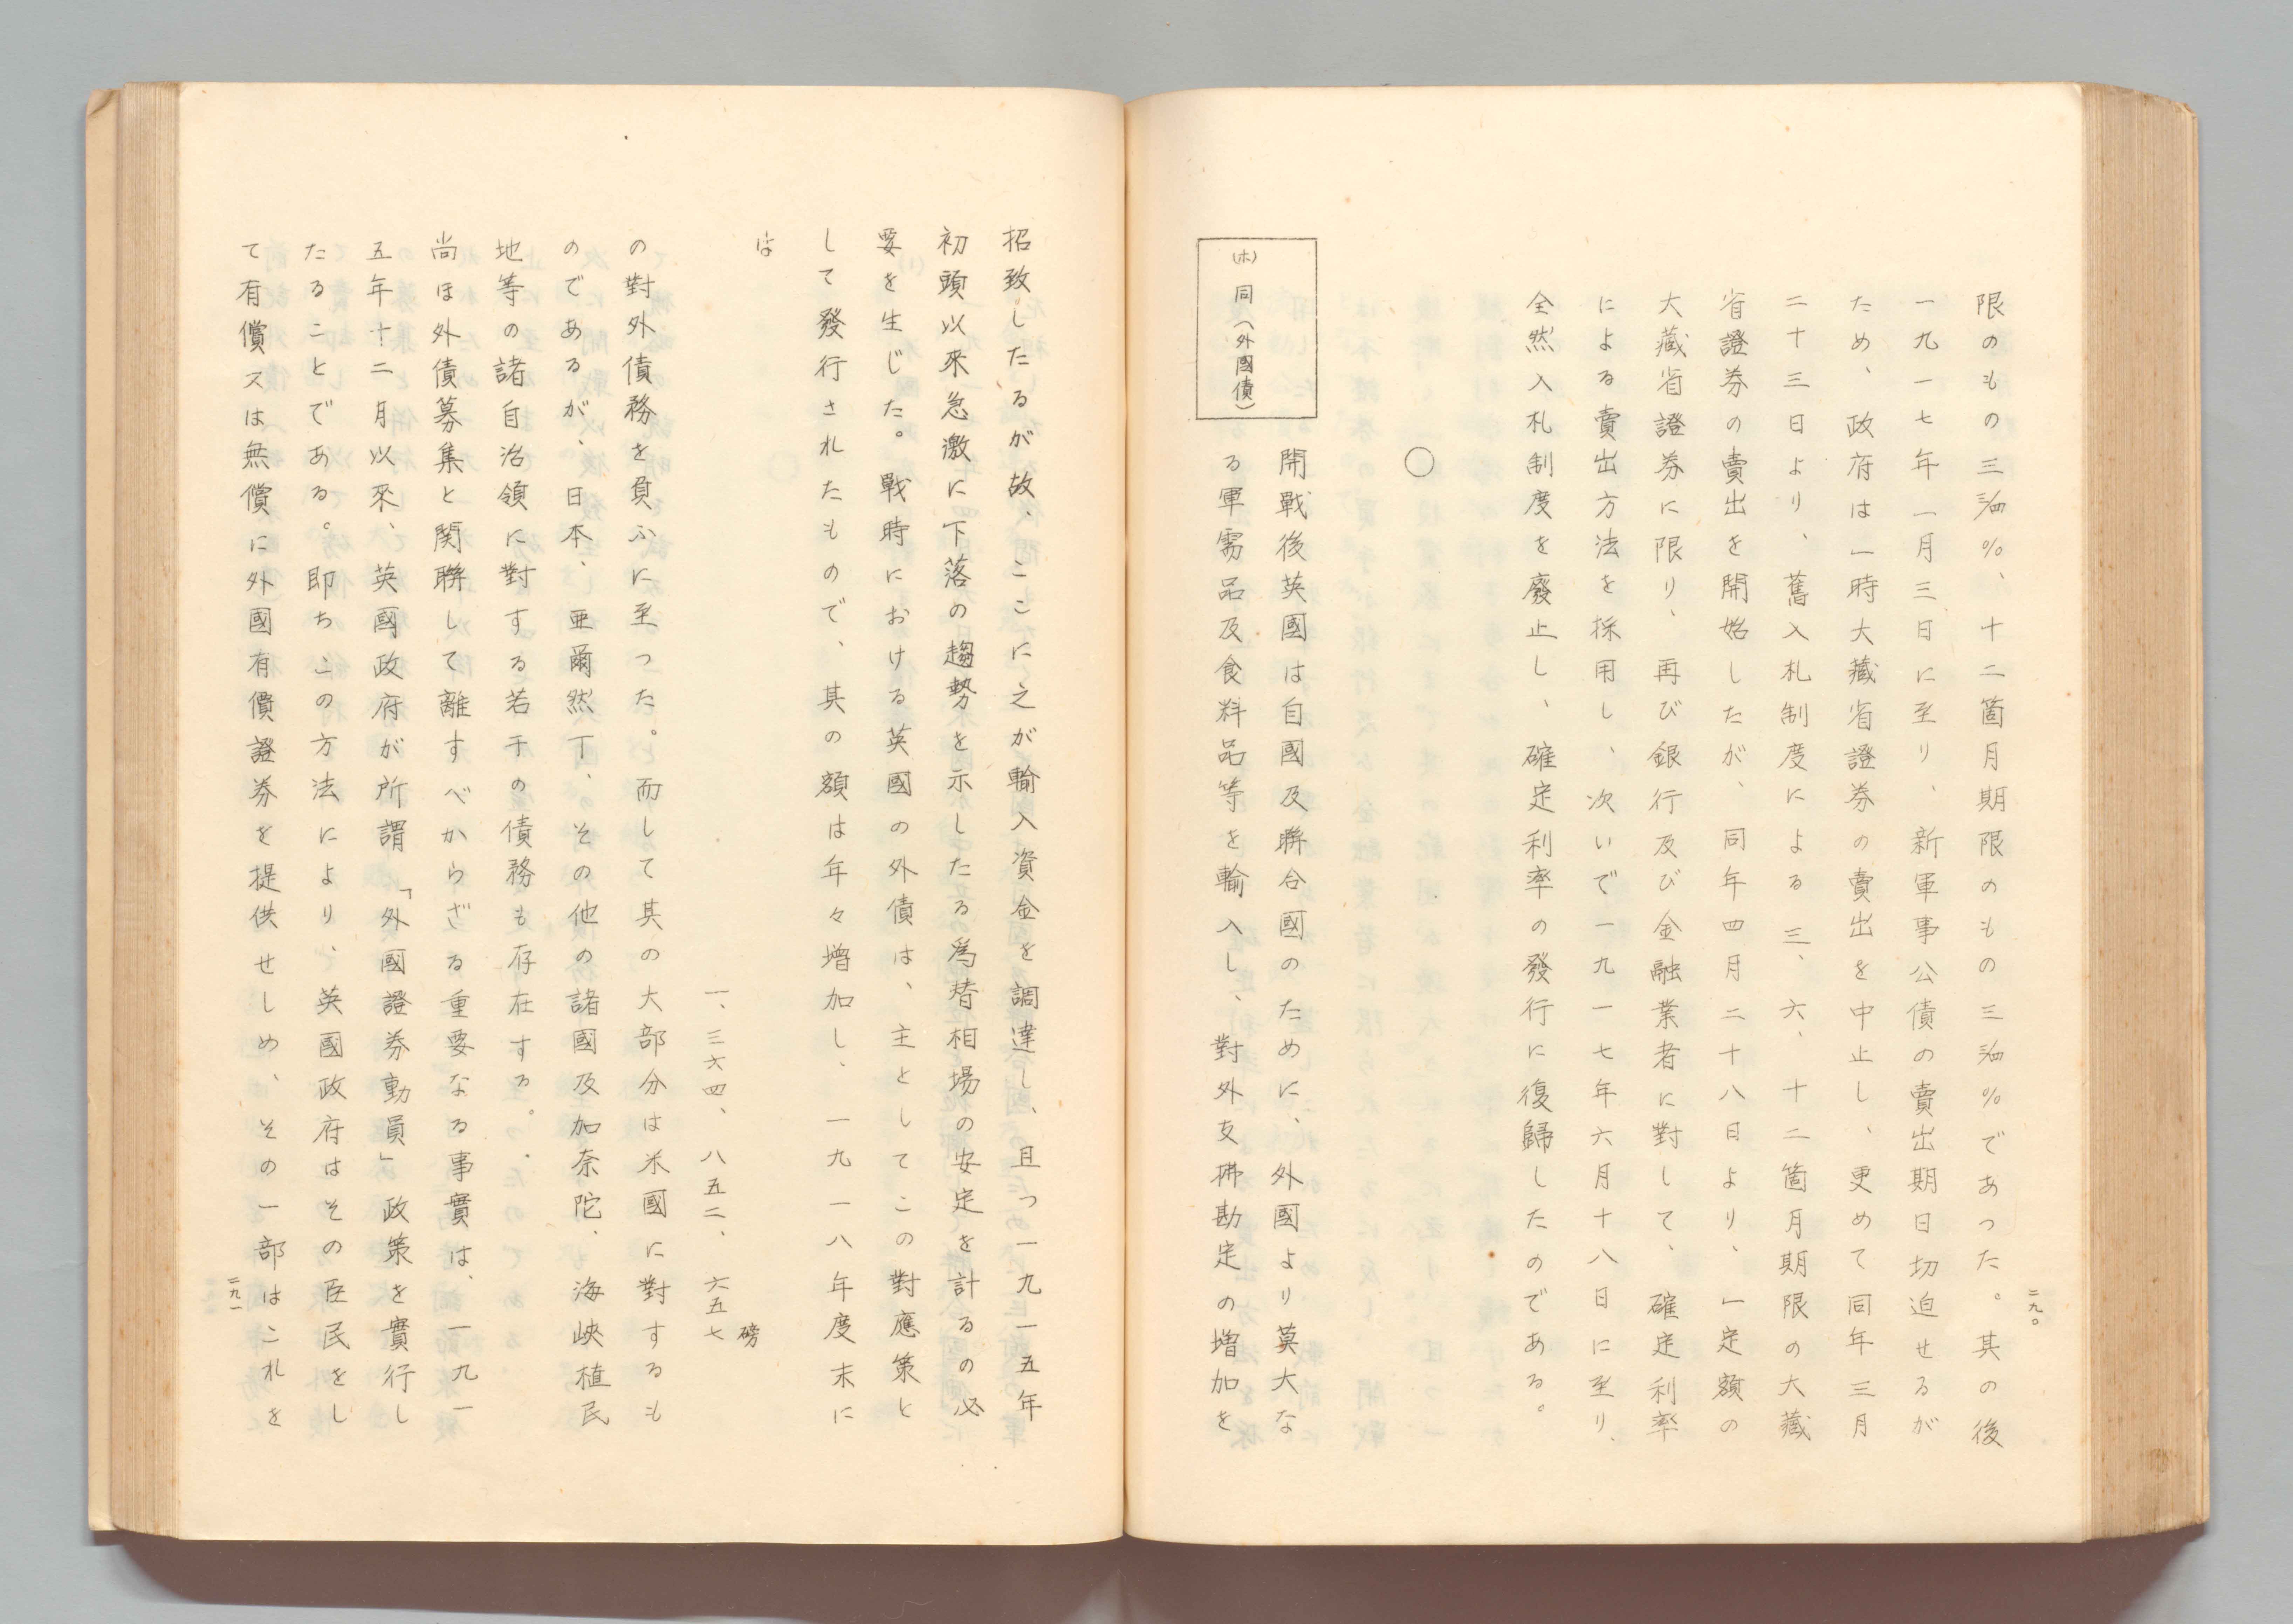 二九〇
限のもの三¾%、十二箇月期限のもの三¾%であつた。其の後
一九一七年一月三日に至り、新軍事公債の賣出期日切迫せるが
ため、政府は一時大藏省證券の賣出を中止し、更めて同年三月
二十三日より、舊入札制度による三、六、十二箇月期限の大藏
省證券の賣出を開始したが、同年四月二十八日より、一定額の
大藏省證券に限り、再び銀行及び金融業者に對して、確定利率
による賣出方法を採用し、次いで一九一七年六月十八日に至り、
全然入札制度を廢止し、確定利率の發行に復歸したのである。
○
(ホ) 同(外國債)
開戰後英國は自國及聯合國のために、外國より莫大な
る軍需品及食料品等を輸入し、對外支拂勘定の增加を
招致したるが故、ここに之が輸入資金を調達し、且つ一九一五年
初頭以來急激に下落の趨勢を示したる爲替相場の安定を計るの必
要を生じた。戰時における英國の外債は、主としてこの對應策と
して發行されたもので、其の額は年々增加し、一九一八年度末に
は
一、三六四、八五二、六五七磅
の對外債務を負ふに至つた。而して其の大部分は米國に對するも
のであるが、日本、亜爾然丁、その他の諸國及加奈陀、海峽植民
地等の諸自治領に對する若干の債務も存在する。
尚ほ外債募集と関聯して離すべからざる重要なる事實は、一九一
五年十二月以來、英國政府が所謂「外國證券動員」政策を實行し
たることである。即ちこの方法により、英國政府はその臣民をし
て有償又は無償に外國有價證券を提供せしめ、その一部はこれを
二九一